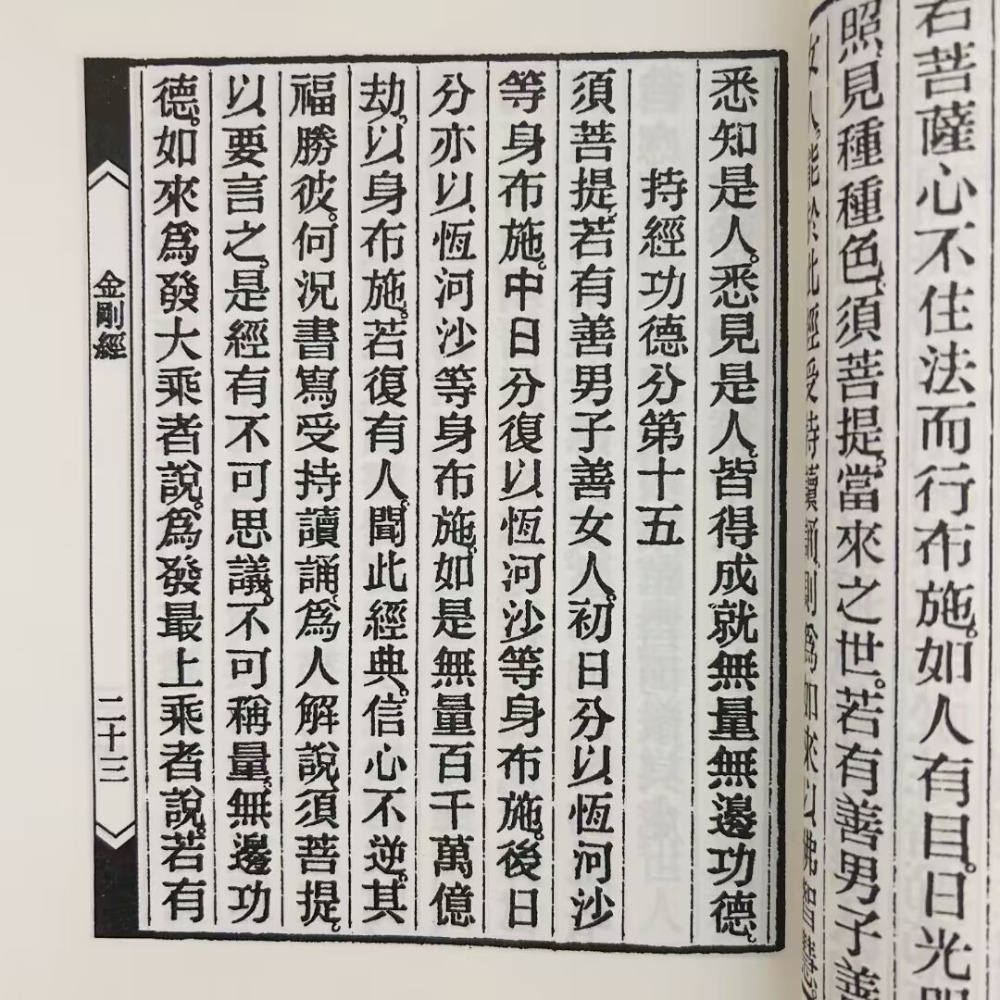 若菩薩心不住法而行布施。如人有目。日光明
照見種種色。須菩提。當來之世。若有善男子善
女人。能於此經受持讀誦。則爲如來以佛智慧。
悉知是人。悉見是人。皆得成就無量無邊功德。
持經功德分第十五
須菩提。若有善男子善女人。初日分以恆河沙
等身布施。中日分復以恆河沙等身布施。後日
分亦以恆河沙等身布施。如是無量百千萬億
劫。以身布施。若復有人。聞此經典。信心不逆。其
福勝彼。何況書寫受持讀誦。爲人解說。須菩提。
以要言之。是經有不可思議。不可稱量。無邊功
德。如來爲發大乘者說。爲發最上乘者說。若有
金剛經
二十三